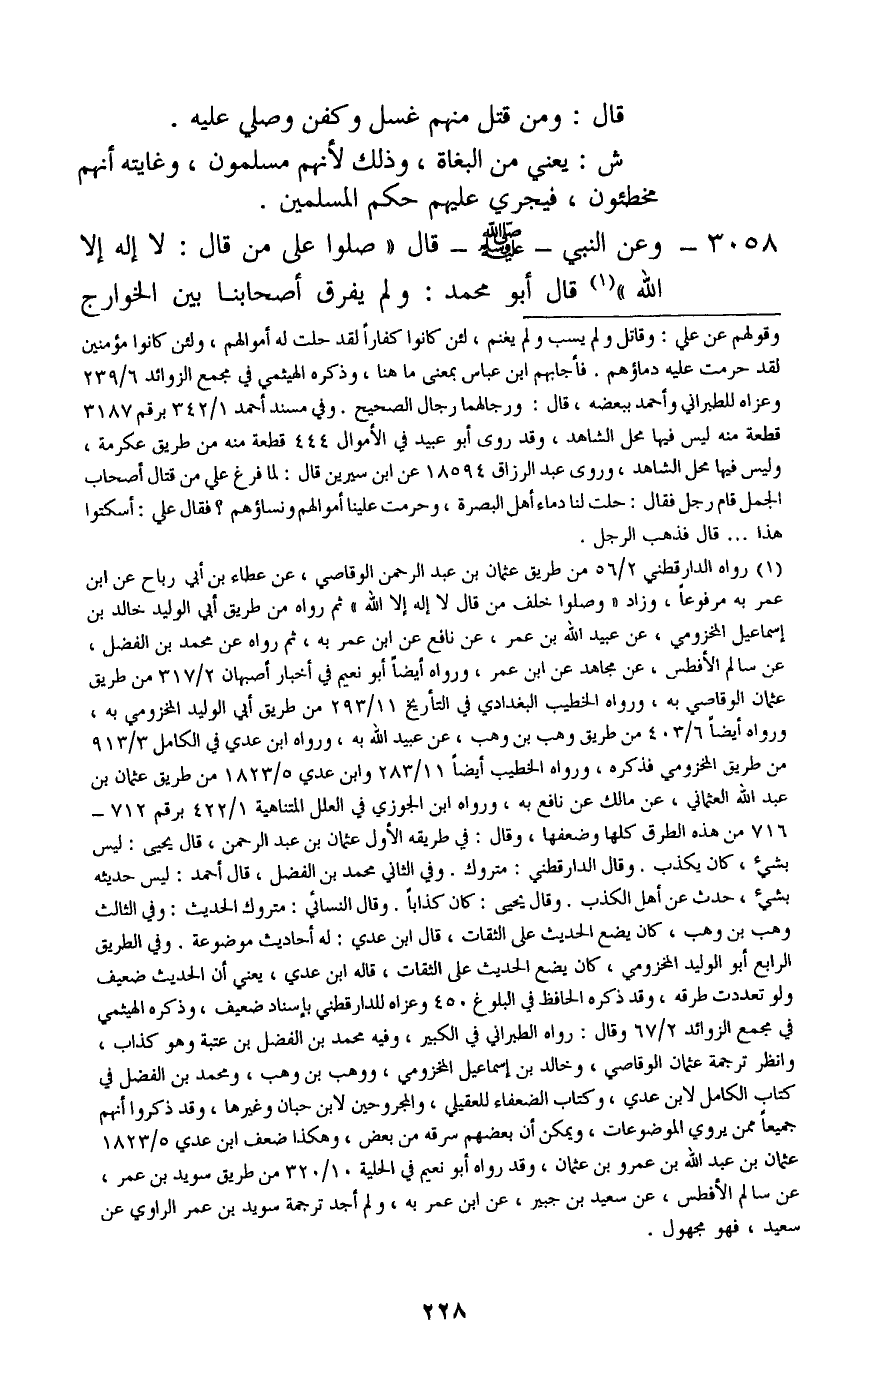 قال : ومن قتل منهم غسل وكفن وصلي عليه .
ش : يعني من البغاة ، وذلك لأنهم مسلمون ، وغايته أنهم
مخطئون ، فيجري عليهم حكم المسلمين .
٣٠٥٨ ــ وعن النبي ــ ﷺ ــ قال « صلوا على من قال : لا إله إلا
الله »(١) قال أبو محمد : ولم يفرق أصحابنـا بين الخوارج
وقولهم عن علي : وقاتل ولم يسب ولم يغنم ، لئن كانوا كفاراً لقد حلت له أموالهم ، ولئن كانوا مؤمنين
لقد حرمت عليه دماؤهم . فأجابهم ابن عباس بمعنى ما هنا ، وذكره الهيثمي في مجمع الزوائد ٢٣٩/٦
وعزاه للطبراني وأحمد ببعضه ، قال : ورجالهما رجال الصحيح . وفي مسند أحمد ٣٤٢/١ برقم ٣١٨٧
قطعة منه ليس فيها محل الشاهد ، وقد روى أبو عبيد في الأموال ٤٤٤ قطعة منه من طريق عكرمة ،
وليس فيها محل الشاهد ، وروى عبد الرزاق ١٨٥٩٤ عن ابن سيرين قال : لما فرغ علي من قتال أصحاب
الجمل قام رجل فقال : حلت لنا دماء أهل البصرة ، وحرمت علينا أموالهم ونساؤهم ؟ فقال علي : أسكتوا
هذا ... قال فذهب الرجل .
(١) رواه الدارقطني ٥٦/٢ من طريق عثمان بن عبد الرحمن الوقاصي ، عن عطاء بن أبي رباح عن ابن
عمر به مرفوعاً ، وزاد « وصلوا خلف من قال لا إله إلا الله » ثم رواه من طريق أبي الوليد خالد بن
إسماعيل المخزومي ، عن عبيد الله بن عمر ، عن نافع عن ابن عمر به ، ثم رواه عن محمد بن الفضل ،
عن سالم الأفطس ، عن مجاهد عن ابن عمر ، ورواه أيضاً أبو نعيم في أخبار أصبهان ٣١٧/٢ من طريق
عثمان الوقاصي به ، ورواه الخطيب البغدادي في التأريخ ٢٩٣/١١ من طريق أبي الوليد المخزومي به ،
ورواه أيضاً ٤٠٣/٦ من طريق وهب بن وهب ، عن عبيد الله به ، ورواه ابن عدي في الكامل ٩١٣/٣
من طريق المخزومي فذكره ، ورواه الخطيب أيضاً ٢٨٣/١١ وابن عدي ١٨٢٣/٥ من طريق عثمان بن
عبد الله العثماني ، عن مالك عن نافع به ، ورواه ابن الجوزي في العلل المتناهية ٤٢٢/١ برقم ٧١٢ ــ
٧١٦ من هذه الطرق كلها وضعفها ، وقال : في طريقه الأول عثمان بن عبد الرحمن ، قال يحيى : ليس
بشيء ، كان يكذب . وقال الدارقطني : متروك . وفي الثاني محمد بن الفضل ، قال أحمد : ليس حديثه
بشيء ، حدث عن أهل الكذب . وقال يحيى : كان كذاباً . وقال النسائي : متروك الحديث : وفي الثالث
وهب بن وهب ، كان يضع الحديث على الثقات ، قال ابن عدي : له أحاديث موضوعة . وفي الطريق
الرابع أبو الوليد المخزومي ، كان يضع الحديث على الثقات ، قاله ابن عدي ، يعني أن الحديث ضعيف
ولو تعددت طرقه ، وقد ذكره الحافظ في البلوغ ٤٥٠ وعزاه للدارقطني بإسناد ضعيف ، وذكره الهيثمي
في مجمع الزوائد ٦٧/٢ وقال : رواه الطبراني في الكبير ، وفيه محمد بن الفضل بن عتبة وهو كذاب ،
وانظر ترجمة عثمان الوقاصي ، وخالد بن إسماعيل المخزومي ، ووهب بن وهب ، ومحمد بن الفضل في
كتاب الكامل لابن عدي ، وكتاب الضعفاء للعقيلي ، والمجروحين لابن حبان وغيرها ، وقد ذكروا أنهم
جميعاً ممن يروي الموضوعات ، ويمكن أن بعضهم سرقه من بعض ، وهكذا ضعف ابن عدي ١٨٢٣/٥
عثمان بن عبد الله بن عمرو بن عثمان ، وقد رواه أبو نعيم في الحلية ٣٢٠/١٠ من طريق سويد بن عمر ،
عن سالم الأفطس ، عن سعيد بن جبير ، عن ابن عمر به ، ولم أجد ترجمة سويد بن عمر الراوي عن
سعيد ، فهو مجهول .
٢٢٨